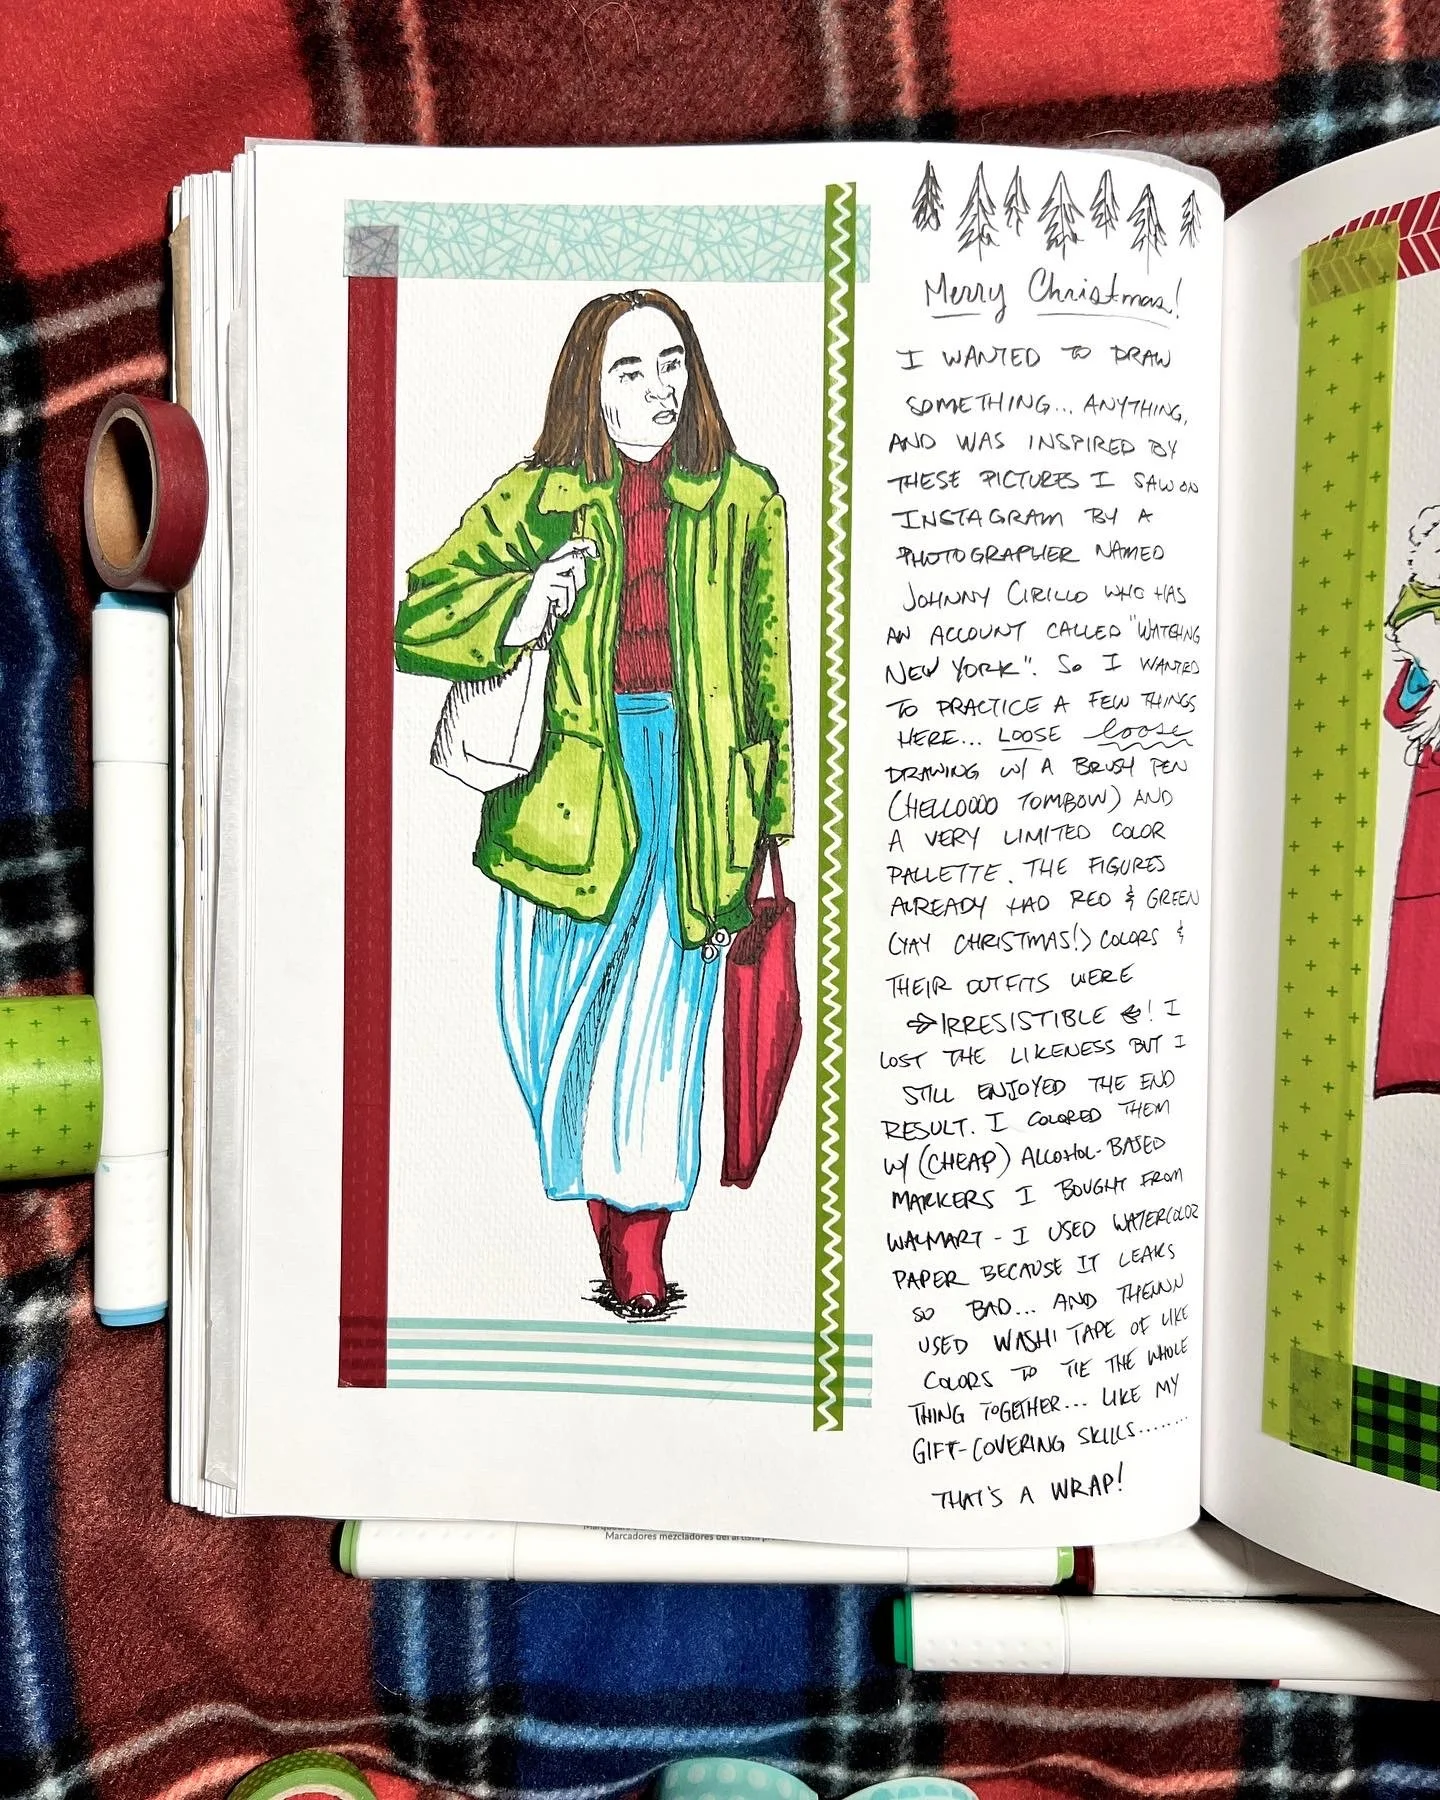 Merry Christmas!
I WANTED TO DRAW
SOMETHING... ANYTHING,
AND WAS INSPIRED BY
THESE PICTURES I SAW ON
INSTAGRAM BY A
PHOTOGRAPHER NAMED
JOHNNY CIRILLO WHO HAS
AN ACCOUNT CALLED "WATCHING
NEW YORK". SO I WANTED
TO PRACTICE A FEW THINGS
HERE... LOOSE loose
DRAWING W/ A BRUSH PEN
(HELLOOOO TOMBOW) AND
A VERY LIMITED COLOR
PALLETTE. THE FIGURES
ALREADY HAD RED & GREEN
(YAY CHRISTMAS!) COLORS &
THEIR OUTFITS WERE
IRRESISTIBLE! I
LOST THE LIKENESS BUT I
STILL ENJOYED THE END
RESULT. I COLORED THEM
W/ (CHEAP) ALCOHOL-BASED
MARKERS I BOUGHT FROM
WALMART - I USED WATERCOLOR
PAPER BECAUSE IT LEAKS
SO BAD... AND THENNN
USED WASHI TAPE OF LIKE
COLORS TO TIE THE WHOLE
THING TOGETHER... LIKE MY
GIFT-COVERING SKILLS........
THAT'S A WRAP!
Marcadores mezcladores del artista